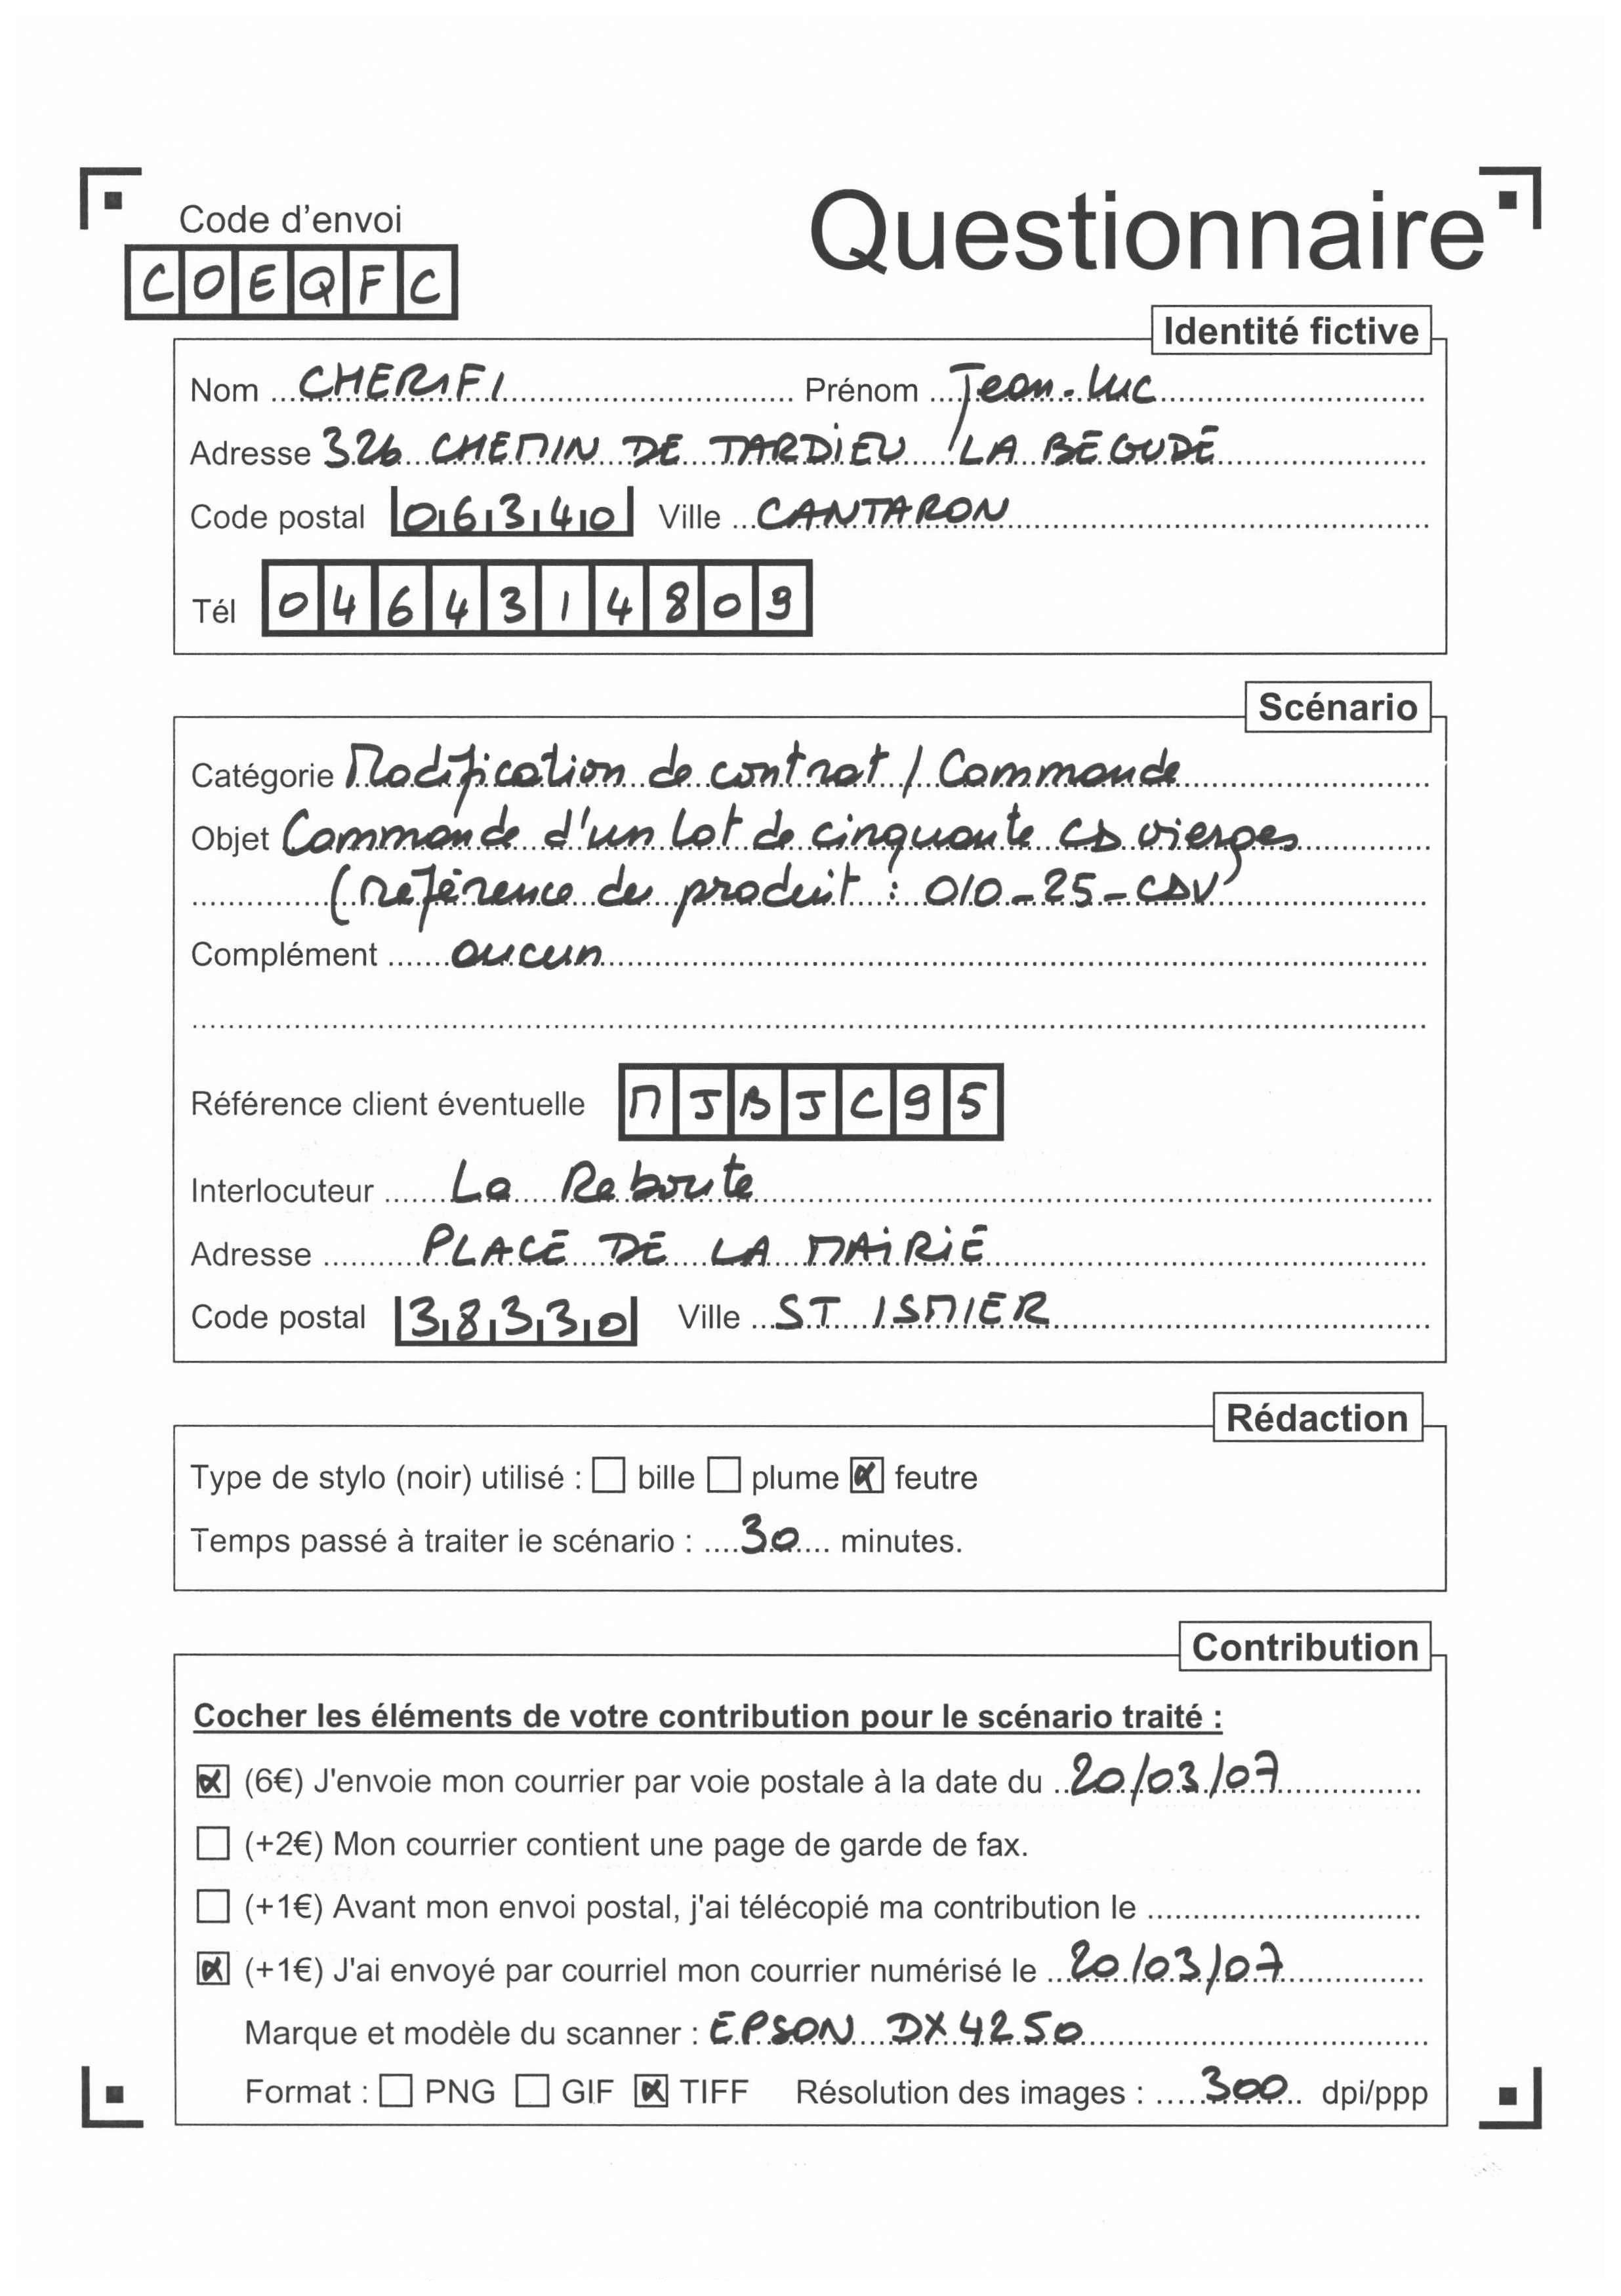 Code d'envoi
Questionnaire
COEQFC
Identité fictive
Nom CHERIFI Prénom Jean-Luc
Adresse 326 CHEMIN DE TARDIEU LA BEGUDE
Code postal 06340 Ville CANTARON
Tél 0464314809
Scénario
Catégorie Modification de contrat / Commande
Objet Commande d'un lot de cinquante CD vierges
(référence du produit : 010-25-CDV)
Complément aucun
Référence client éventuelle MJBJC95
Interlocuteur La Reboute
Adresse PLACE DE LA MAIRIE
Code postal 38330 Ville ST ISMIER
Rédaction
Type de stylo (noir) utilisé : bille plume feutre
Temps passé à traiter le scénario : 30 minutes.
Contribution
Cocher les éléments de votre contribution pour le scénario traité :
(6€) J'envoie mon courrier par voie postale à la date du 20/03/07
(+2€) Mon courrier contient une page de garde de fax.
(+1€) Avant mon envoi postal, j'ai télécopié ma contribution le
(+1€) J'ai envoyé par courriel mon courrier numérisé le 20/03/07
Marque et modèle du scanner : EPSON DX4250
Format : PNG GIF TIFF Résolution des images : 300 dpi/ppp